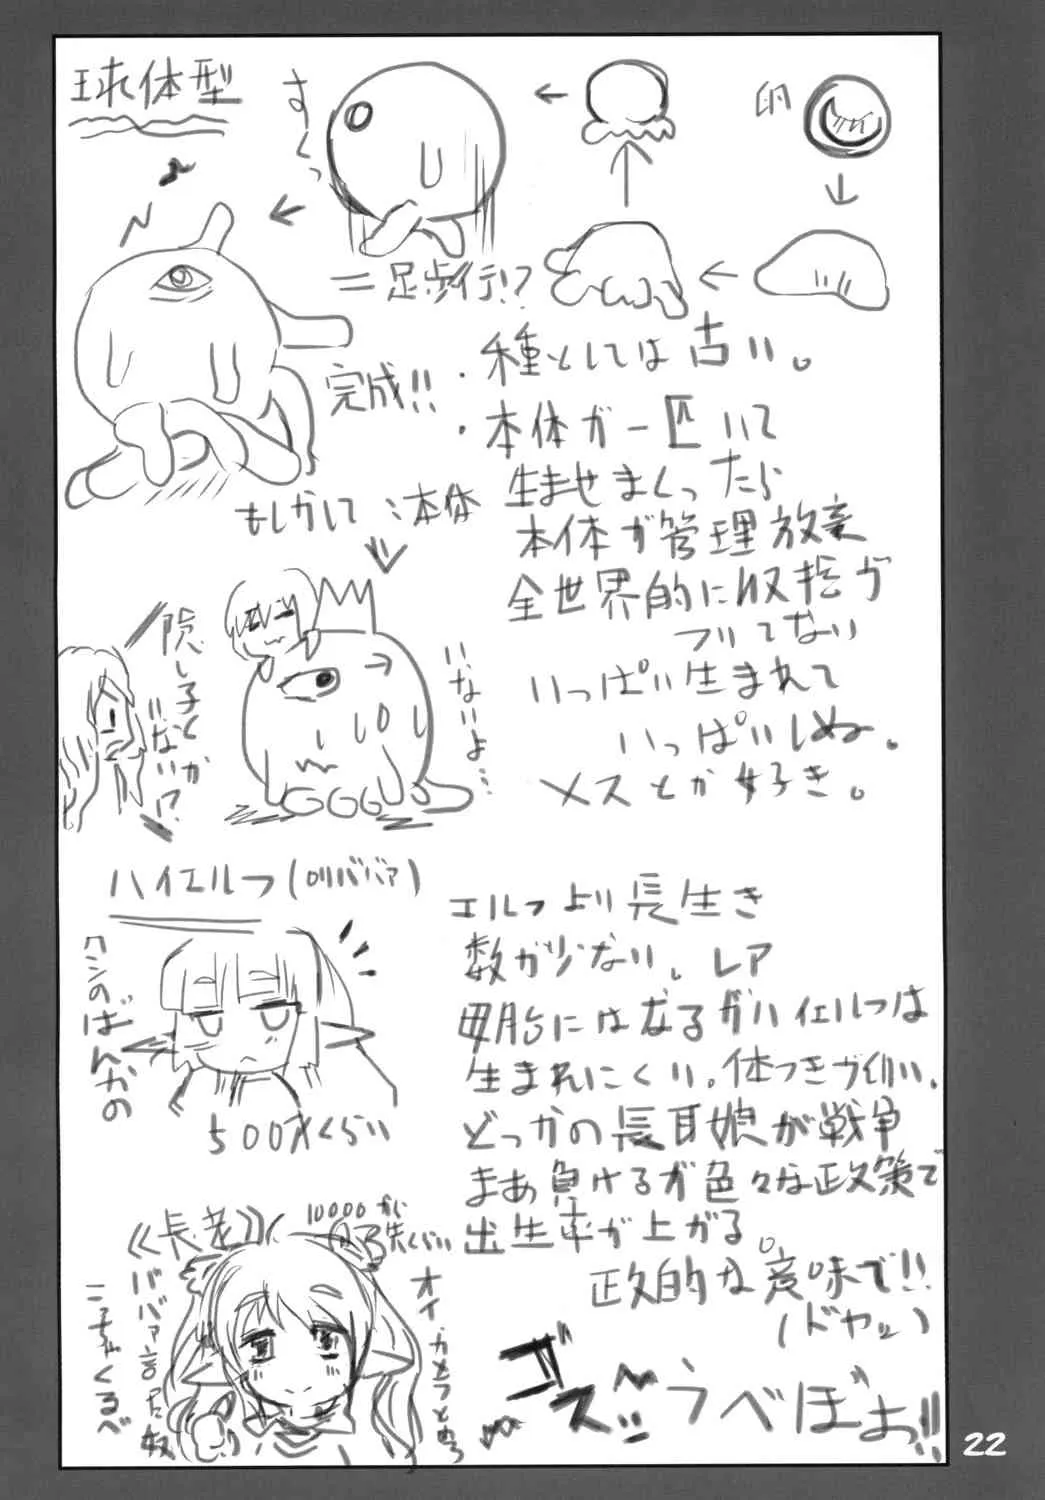 球体型
卵
すくっ
二足歩行!?
完成!!
・種としては古い。
・本体が一匹いて
生ませまくったら
本体が管理放棄
全世界的に収拾が
ついてない
いっぱい生まれて
いっぱいしぬ。
メスとか好き。
もしかして:本体
隠し子とか
いない!?
いないよ…
ハイエルフ(ロリババァ)
500才くらい
エルフより長生き
数が少ない。レア
母胎にはなるがハイエルフは
生まれにくい。体つきが
どっかの長耳娘が戦争
まあ負けるが色々な政策で
出生率が上がる。
政治的な意味で!!
(ドヤッ)
《長老》
10000才
くらい
ゴズッ
うべぼぉ!!
22